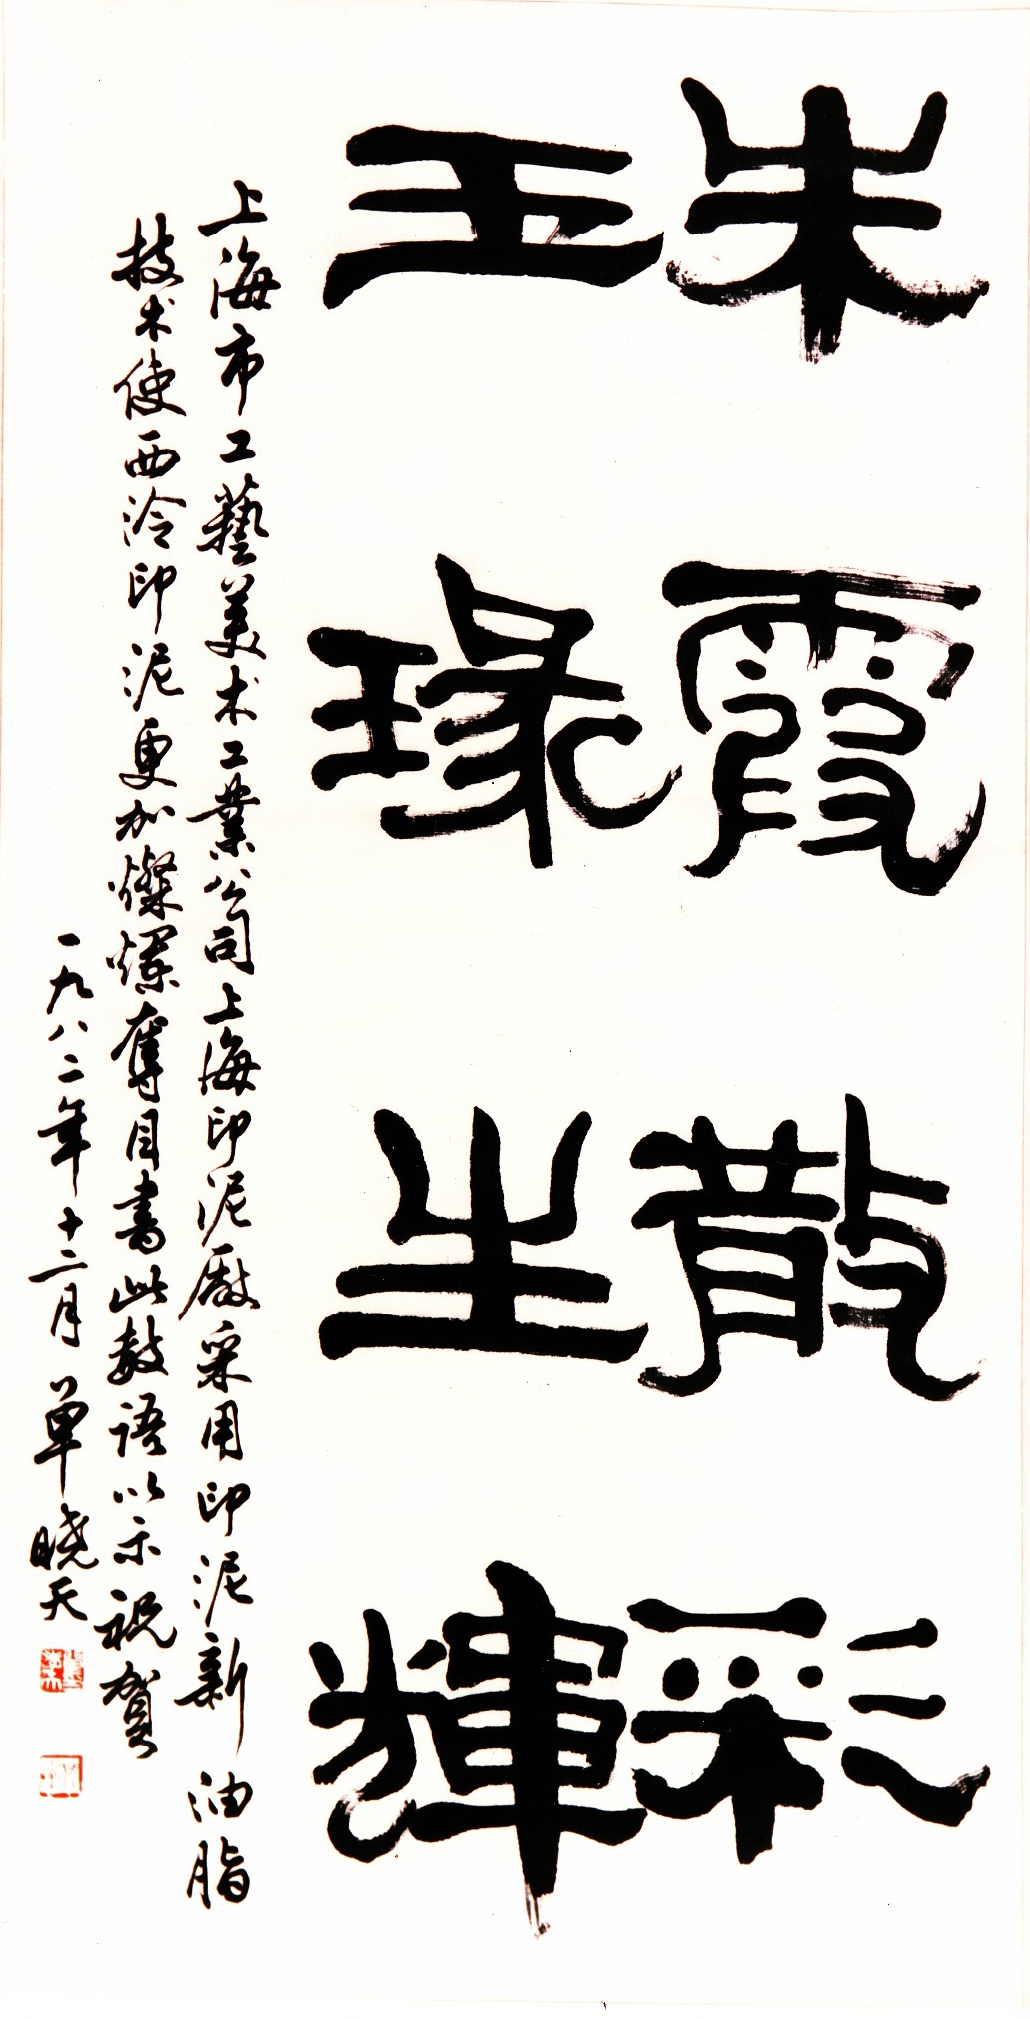 朱霞散彩
玉瑑生輝
上海市工藝美术工業公司上海印泥廠采用印泥新油脂
技术使西泠印泥更加燦爛奪目書此数语以示祝贺
一九八二年十二月单晓天